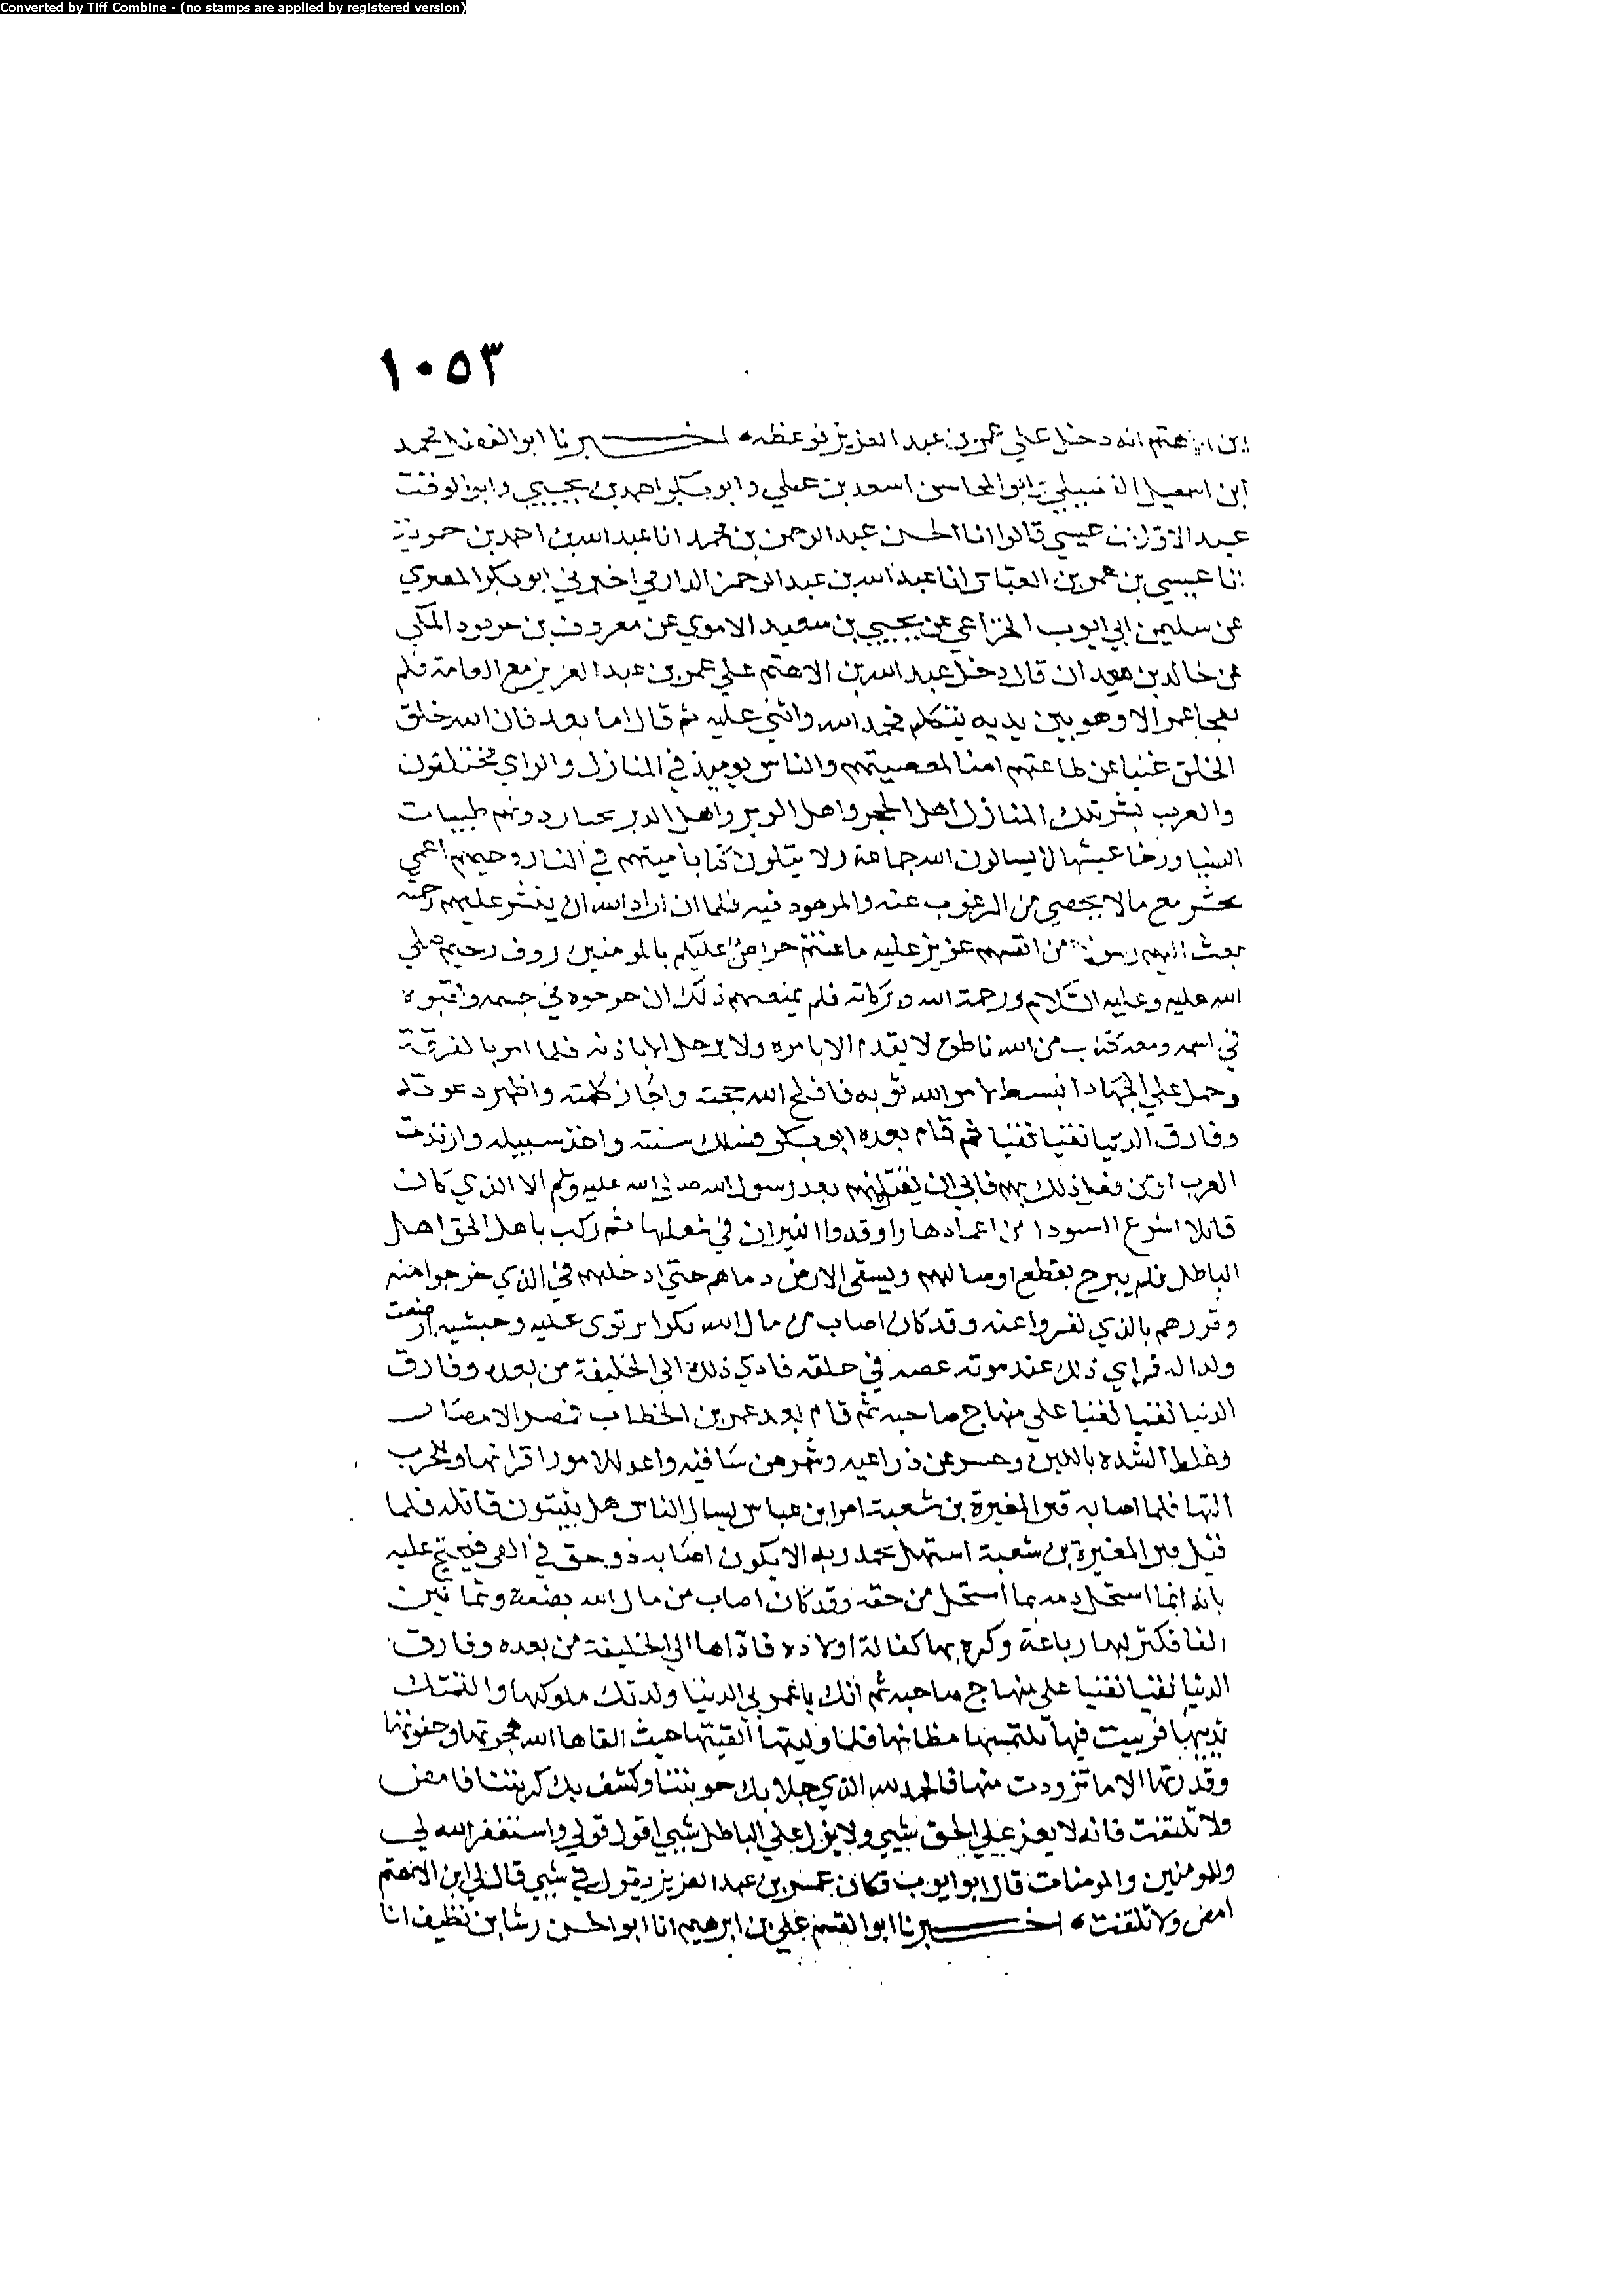 Converted by Tiff Combine - (no stamps are applied by registered version)
١٠٥٣
ابن الاهتم انه دخل علي عمر بن عبد العزيز فوعظه اخبرنا ابو الفضل محمد
ابن اسمعيل الفضيلي وابو المحاسن اسعد بن علي وابو بكر احمد بن يحيي وابو الوقت
عبد الاول بن عيسي قالوا انا الحسن عبد الرحمن بن محمد انا عبد الله بن احمد بن حموية
انا عيسي بن عمر بن العباس انا عبد الله بن عبد الرحمن الدارمي اخبرني ابو بكر المصري
عن سليمن ابي ايوب الخزاعي عن يحيي بن سعيد الاموي عن معروف بن خربوذ المكي
عن خالد بن معدان قال دخل عبد الله بن الاهتم علي عمر بن عبد العزيز مع العامة فلم
يفجا عمر الا وهو بين يديه يتكلم فحمد الله واثني عليه ثم قال اما بعد فان الله خلق
الخلق غنيا عن طاعتهم امنا لمعصيتهم والناس يوميذ في المنازل والراي مختلفون
والعرب بشر تلك المنازل اهل الحجر واهل الوبر واهل الدبر تحتار دونهم طيبات
الدنيا ورخا عيشها لا يسالون الله جماعة ولا يتلون كتابا ميتهم في النار وحيهم اعمي
بحشر مع مالا يحصي من المرغوب عنه والمزهود فيه فلما ان اراد الله ان ينشر عليهم رحمته
بعث اليهم رسولا من انفسهم عزيز عليه ما عنتم حريص عليكم بالمومنين روف رحيم صلي
الله عليه وعليه السلام ورحمة الله وبركاته فلم يمنعهم ذلك ان جرحوه في جسمه ولقبوه
في اسمه ومعه كتاب من الله ناطق لا يقدم الا بامره ولا يرحل الا باذنه فلما امر بالعزيمة
وحمل علي الجهاد انبسط لامر الله ثوبه فافلج الله حجته واجاز كلمته واظهر دعوته
وفارق الدنيا نقيا تقيا ثم قام بعده ابو بكر فسلك سنته واخذ سبيله وارتدت
العرب او من فعل ذلك بهم فابي ان يقبل منهم بعد رسول الله صلى الله عليه وسلم الا الذي كان
قابلا انتزع السيوف من اغمادها واوقدوا النيران في شعلها ثم ركب باهل الحق اهل
الباطل فلم يبرح يقطع اوصالهم ويسقي الارض دماهم حتي ادخلهم في الذي خرجوا منه
وقررهم بالذي نفروا عنه وقد كان اصاب من مال الله بكرا يرتوى عليه وحبشيه ارضعت
ولدا له فراي ذلك عند موته غصه في حلقه فادي ذلك الي الخليفة من بعده وفارق
الدنيا نقيا تقيا علي منهاج صاحبه ثم قام بعده عمر بن الخطاب فمصر الامصار
وخلط الشده باللين وحسر عن ذراعيه وشمر عن ساقيه واعد للامور اقرانها وللحرب
التها فلما اصابه قين المغيرة بن شعبة امر ابن عباس يسال الناس هل يثبتون قاتله فلما
قيل قين المغيرة بن شعبة استهل بحمد ربه الا يكون اصابه ذو حق في الفي فيحتج عليه
بانه انما استحل دمه بما استحل من حقه وقد كان اصاب من مال الله بضعة وثمانين
الفا فكسر لها رباعه وكره بها كفالة اولاده فاداها الي الخليفة من بعده وفارق
الدنيا نقيا تقيا علي منهاج صاحبه ثم انك يا عمر بني الدنيا ولدتك ملوكها والقمتك
ثدييها فربيت فيها تلتمسها مظانها فلما وليتها القيتها حيث القاها الله هجرتها وجفوتها
وقدرتها الا ما تزودت منها فالحمد لله الذي جلا بك حوبتنا وكشف بك كربتنا فامض
ولا تلتفت فانه لا يعز علي الحق شيي ولا يذل علي الباطل شيي اقول قولي واستغفر الله لي
وللمومنين والمومنات قال ابو ايوب فكان عمر بن عبد العزيز يقول في شيي قال لي ابن الاهتم
امض ولا تلتفت اخبرنا ابو القسم علي بن ابرهيم انا ابو الحسن رشا بن نظيف انا